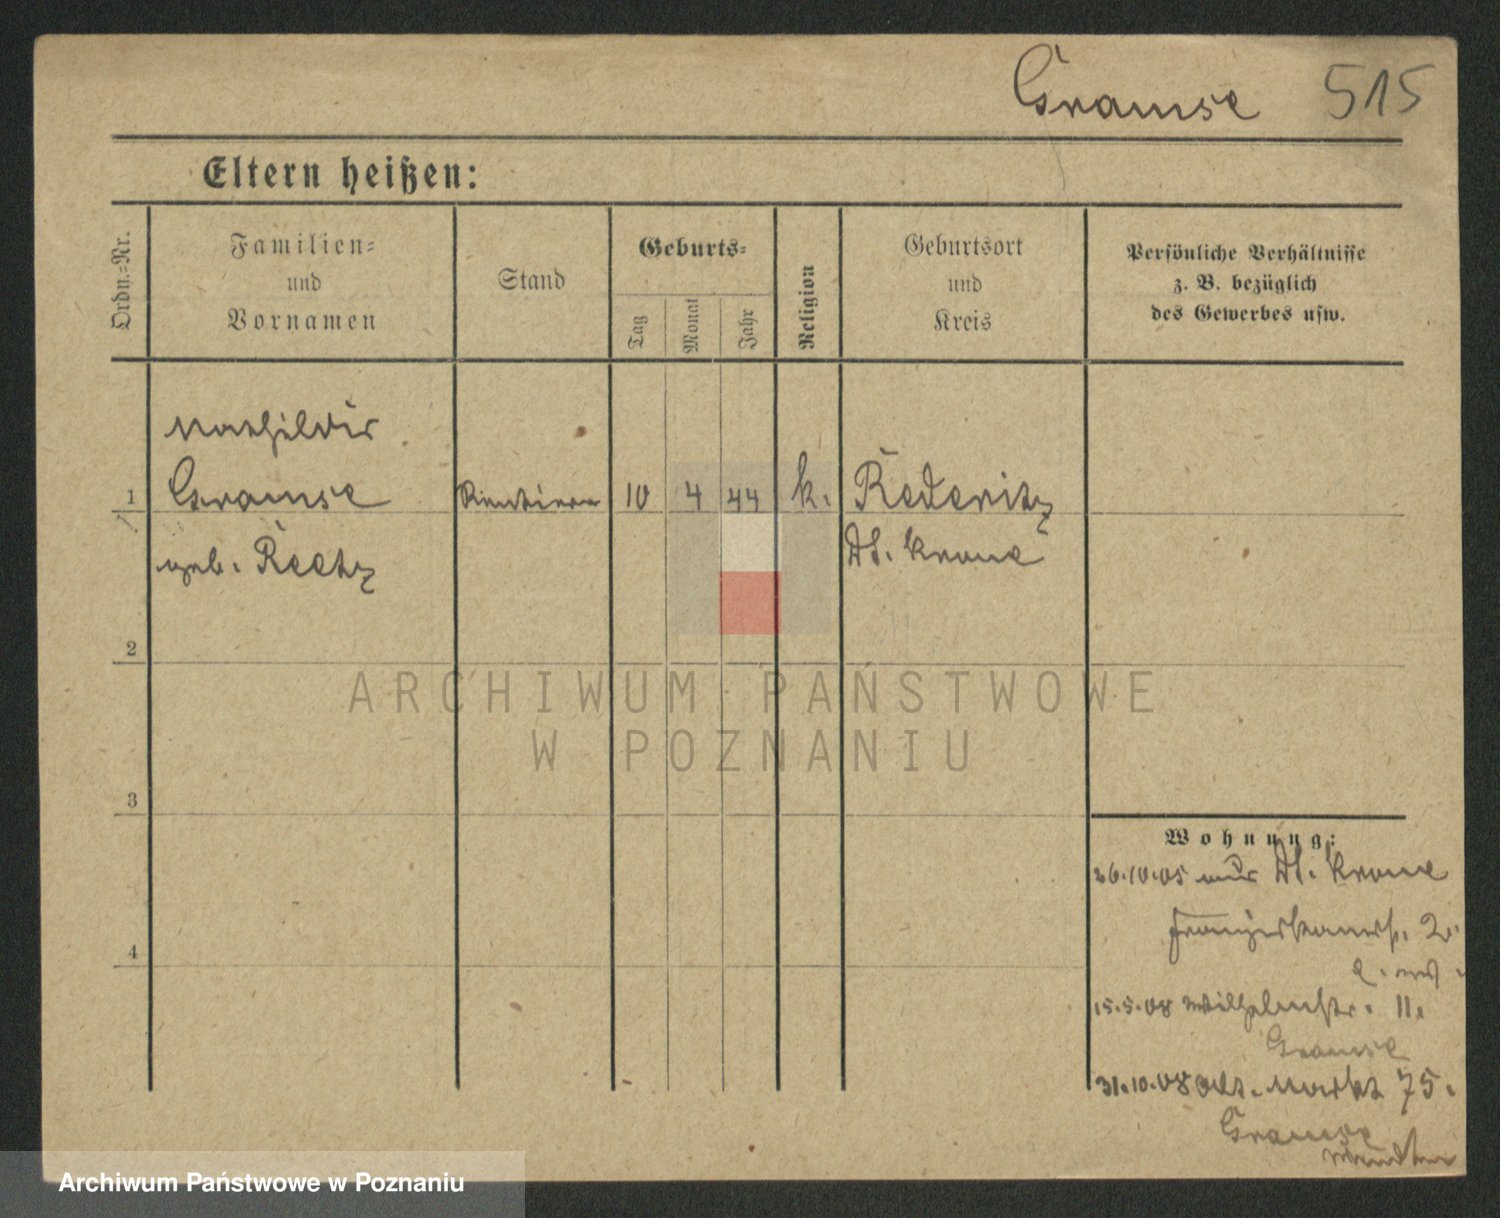 Gramse 515
Eltern heißen:
Ordn.=Nr.
Familien=
und
Vornamen
Stand
Geburts=
Tag
Monat
Jahr
Religion
Geburtsort
und
Kreis
Persönliche Verhältnisse
z. B. bezüglich
des Gewerbes usw.
Mathilde
1 Gramse Rentiere 10 4 44 k. Rederitz
geb. Reetz Dt. Krone
2
3
4
ARCHIWUM PAŃSTWOWE
W POZNANIU
Wohnung:
26.10.05 aus Dt. Krone
15.5.08 Wilhelmstr. 11.
Gramse
31.10.08 Alt. Markt 75.
Gramse
Archiwum Państwowe w Poznaniu